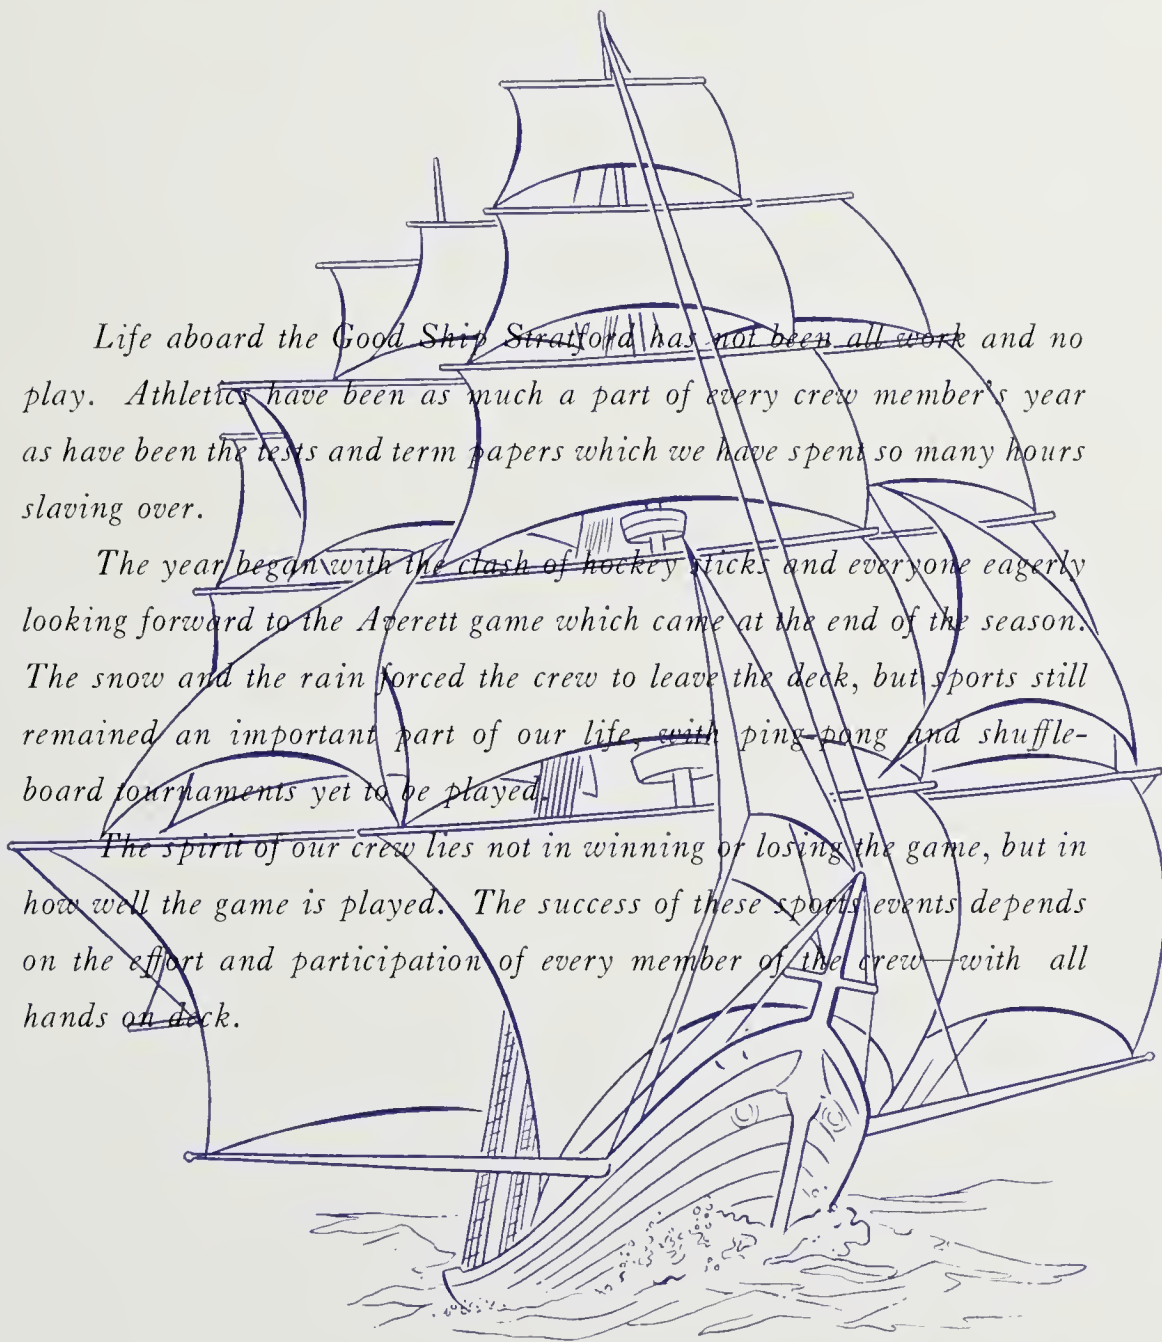 Life aboard the Good Ship Stratford has not been all work and no
play. Athletics have been as much a part of every crew member's year
as have been the tests and term papers which we have spent so many hours
slaving over.
The year began with the clash of hockey sticks and everyone eagerly
looking forward to the Averett game which came at the end of the season.
The snow and the rain forced the crew to leave the deck, but sports still
remained an important part of our life, with ping-pong and shuffle-
board tournaments yet to be played.
The spirit of our crew lies not in winning or losing the game, but in
how well the game is played. The success of these sports events depends
on the effort and participation of every member of the crew—with all
hands on deck.